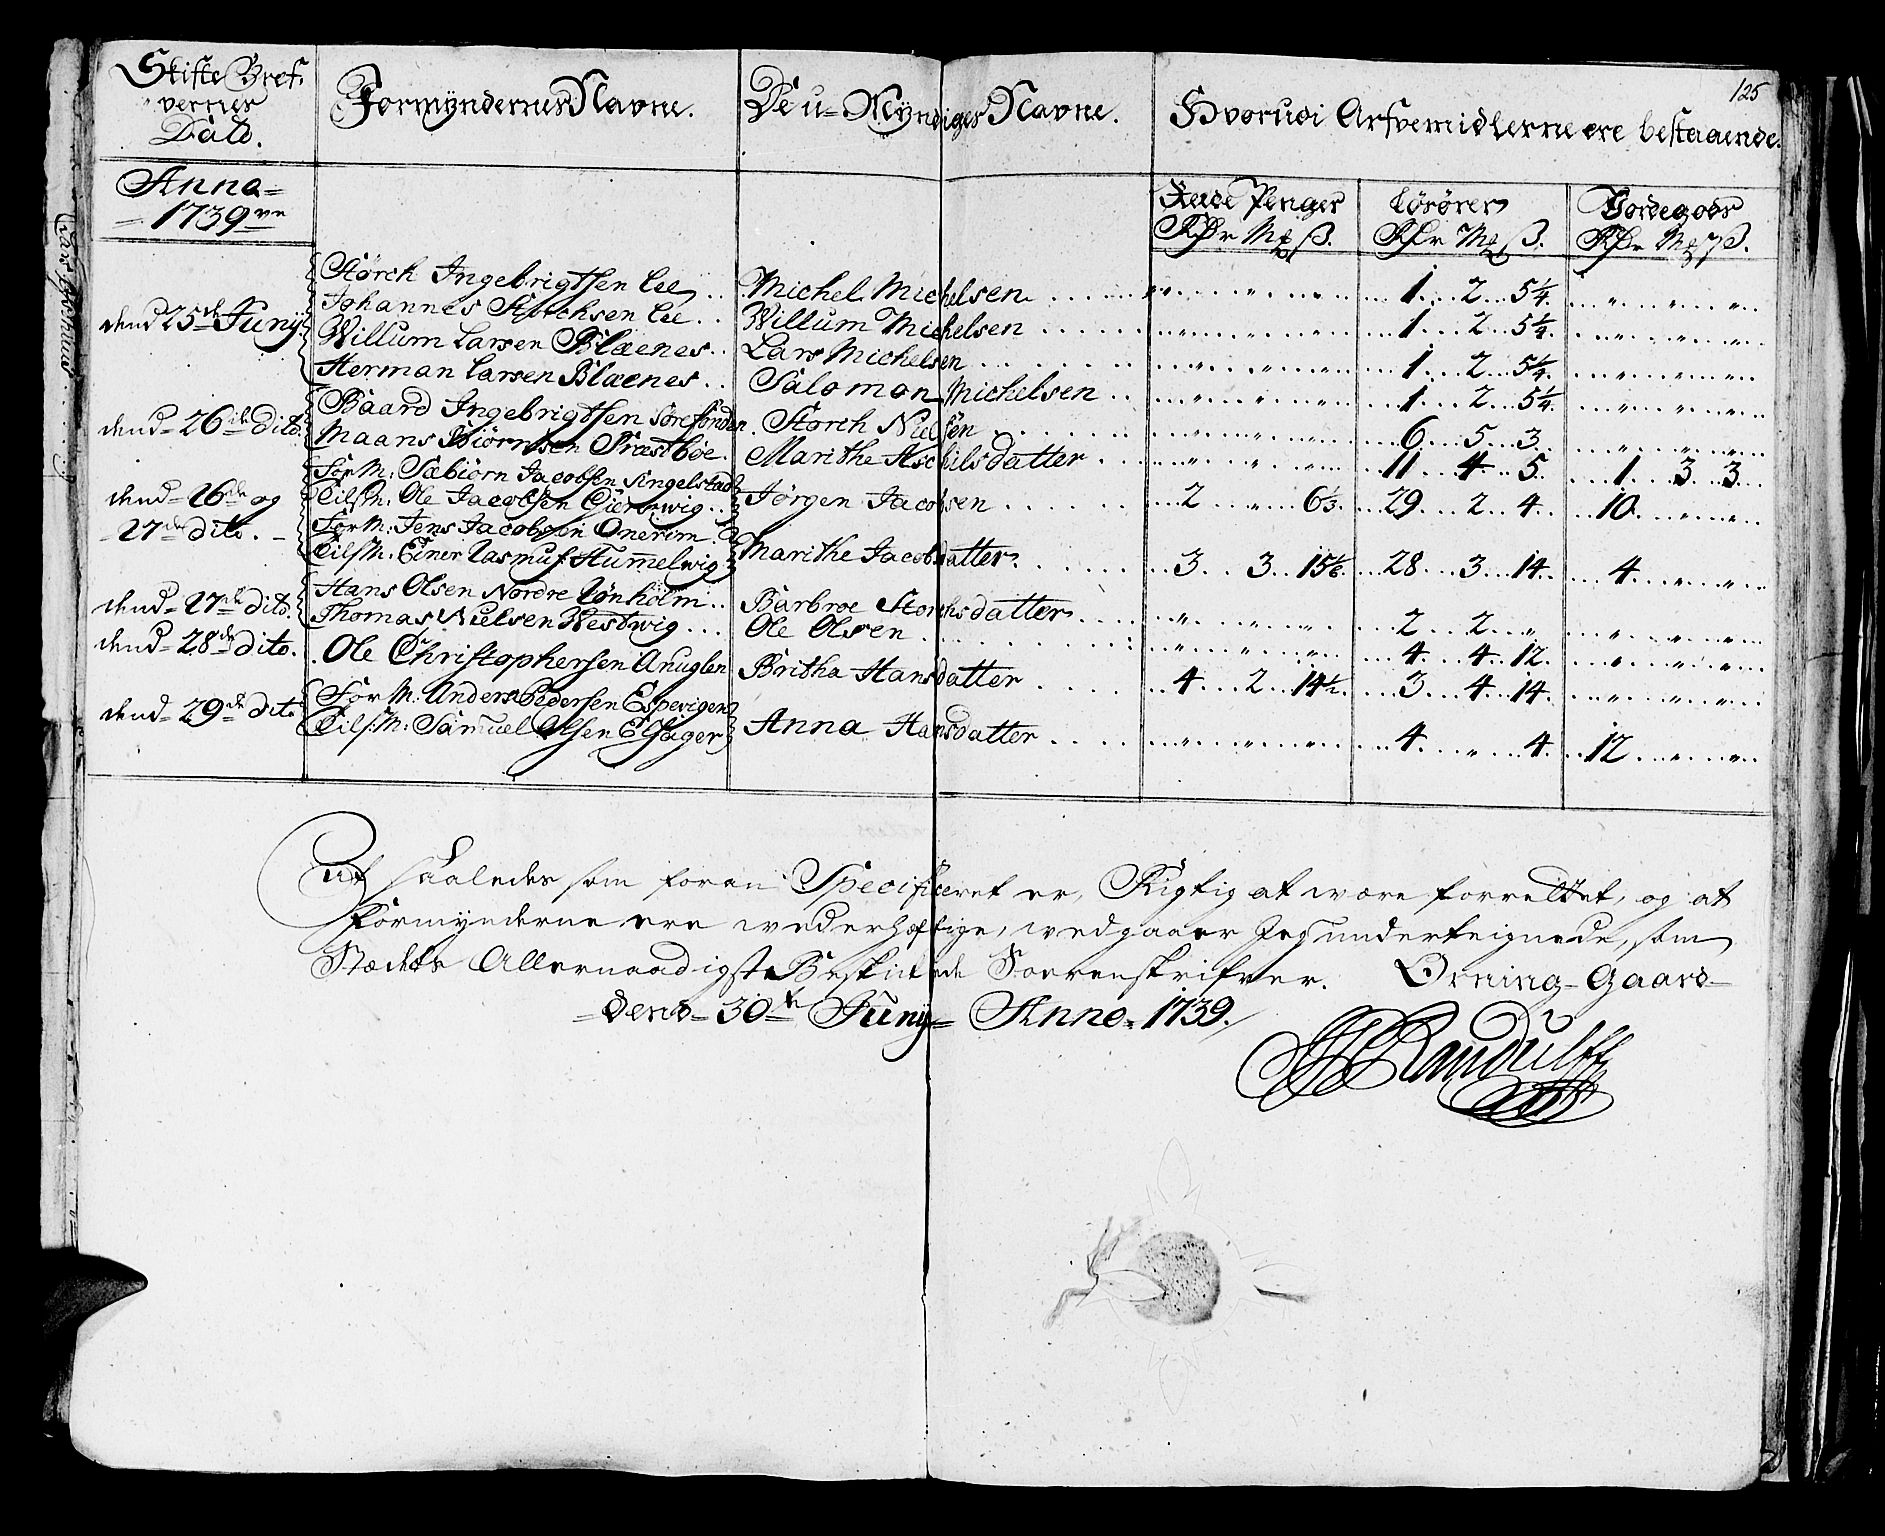 125
Skifte Bref-
vernes
Dato.
Formyndernes Navne.
De u-Myndiges Navne.
Hvorudi Arfvemidlerne ere bestaaende.
Anno
1739
Rede Penger Rdr Mk ß.
Lösörer Rdr Mk ß.
Jordegods Rdr Mk ß.
dend 25de Juny
Störch Ingebrigtsen Lee Michel Michelsen 1 2 5¼
Johannes Storchsen Lee Willum Michelsen 1 2 5¼
Willum Larsen Blaenes Lars Michelsen 1 2 5¼
Herman Larsen Blaenes Saloman Michelsen 1 2 5¼
dend 26de Dito. Baard Ingebrigtsen Storch Nielsen 6 5 3
Maans Biörnsen Præstböe. Marithe Aschilsdatter 11 4 5 1 3 3
dend 26de og 27de dito.
For M: Sæbiörn Jacobsen Singelstad
Tils M: Ole Jacobsen Jörgen Jacobsen 2 6⅓ 29 2 4 10
For M: Jens Jacobsen Onerim
Tils M: Einer Rasmus: Hummelwig Marithe Jacobsdatter 3 3 15⅙ 28 3 14 4
dend 27de dito. Hans Olsen Nordre Lönholm Barbroe Storchsdatter 2 2
Thomas Nielsen Westwig Ole Olsen 4 4 12
dend 28de dito. Ole Christophersen Anuglen Britha Hansdatter 4 2 14½ 3 4 14
dend 29de dito
For M: Anders Pedersen Espevigen
Tils M: Samuel Olsen Anna Hansdatter 4 4 12
At saaledes som foran Specificeret er, Rigtig at være forrettet, og at
Formynderne ere wederhæftige, wedgaaer Jeg underteignede, som
Stædets Allernaadigst Beskickede Soerenskrifver. Örning-Gaard
dend 30te Juny Anno 1739.
Randulff